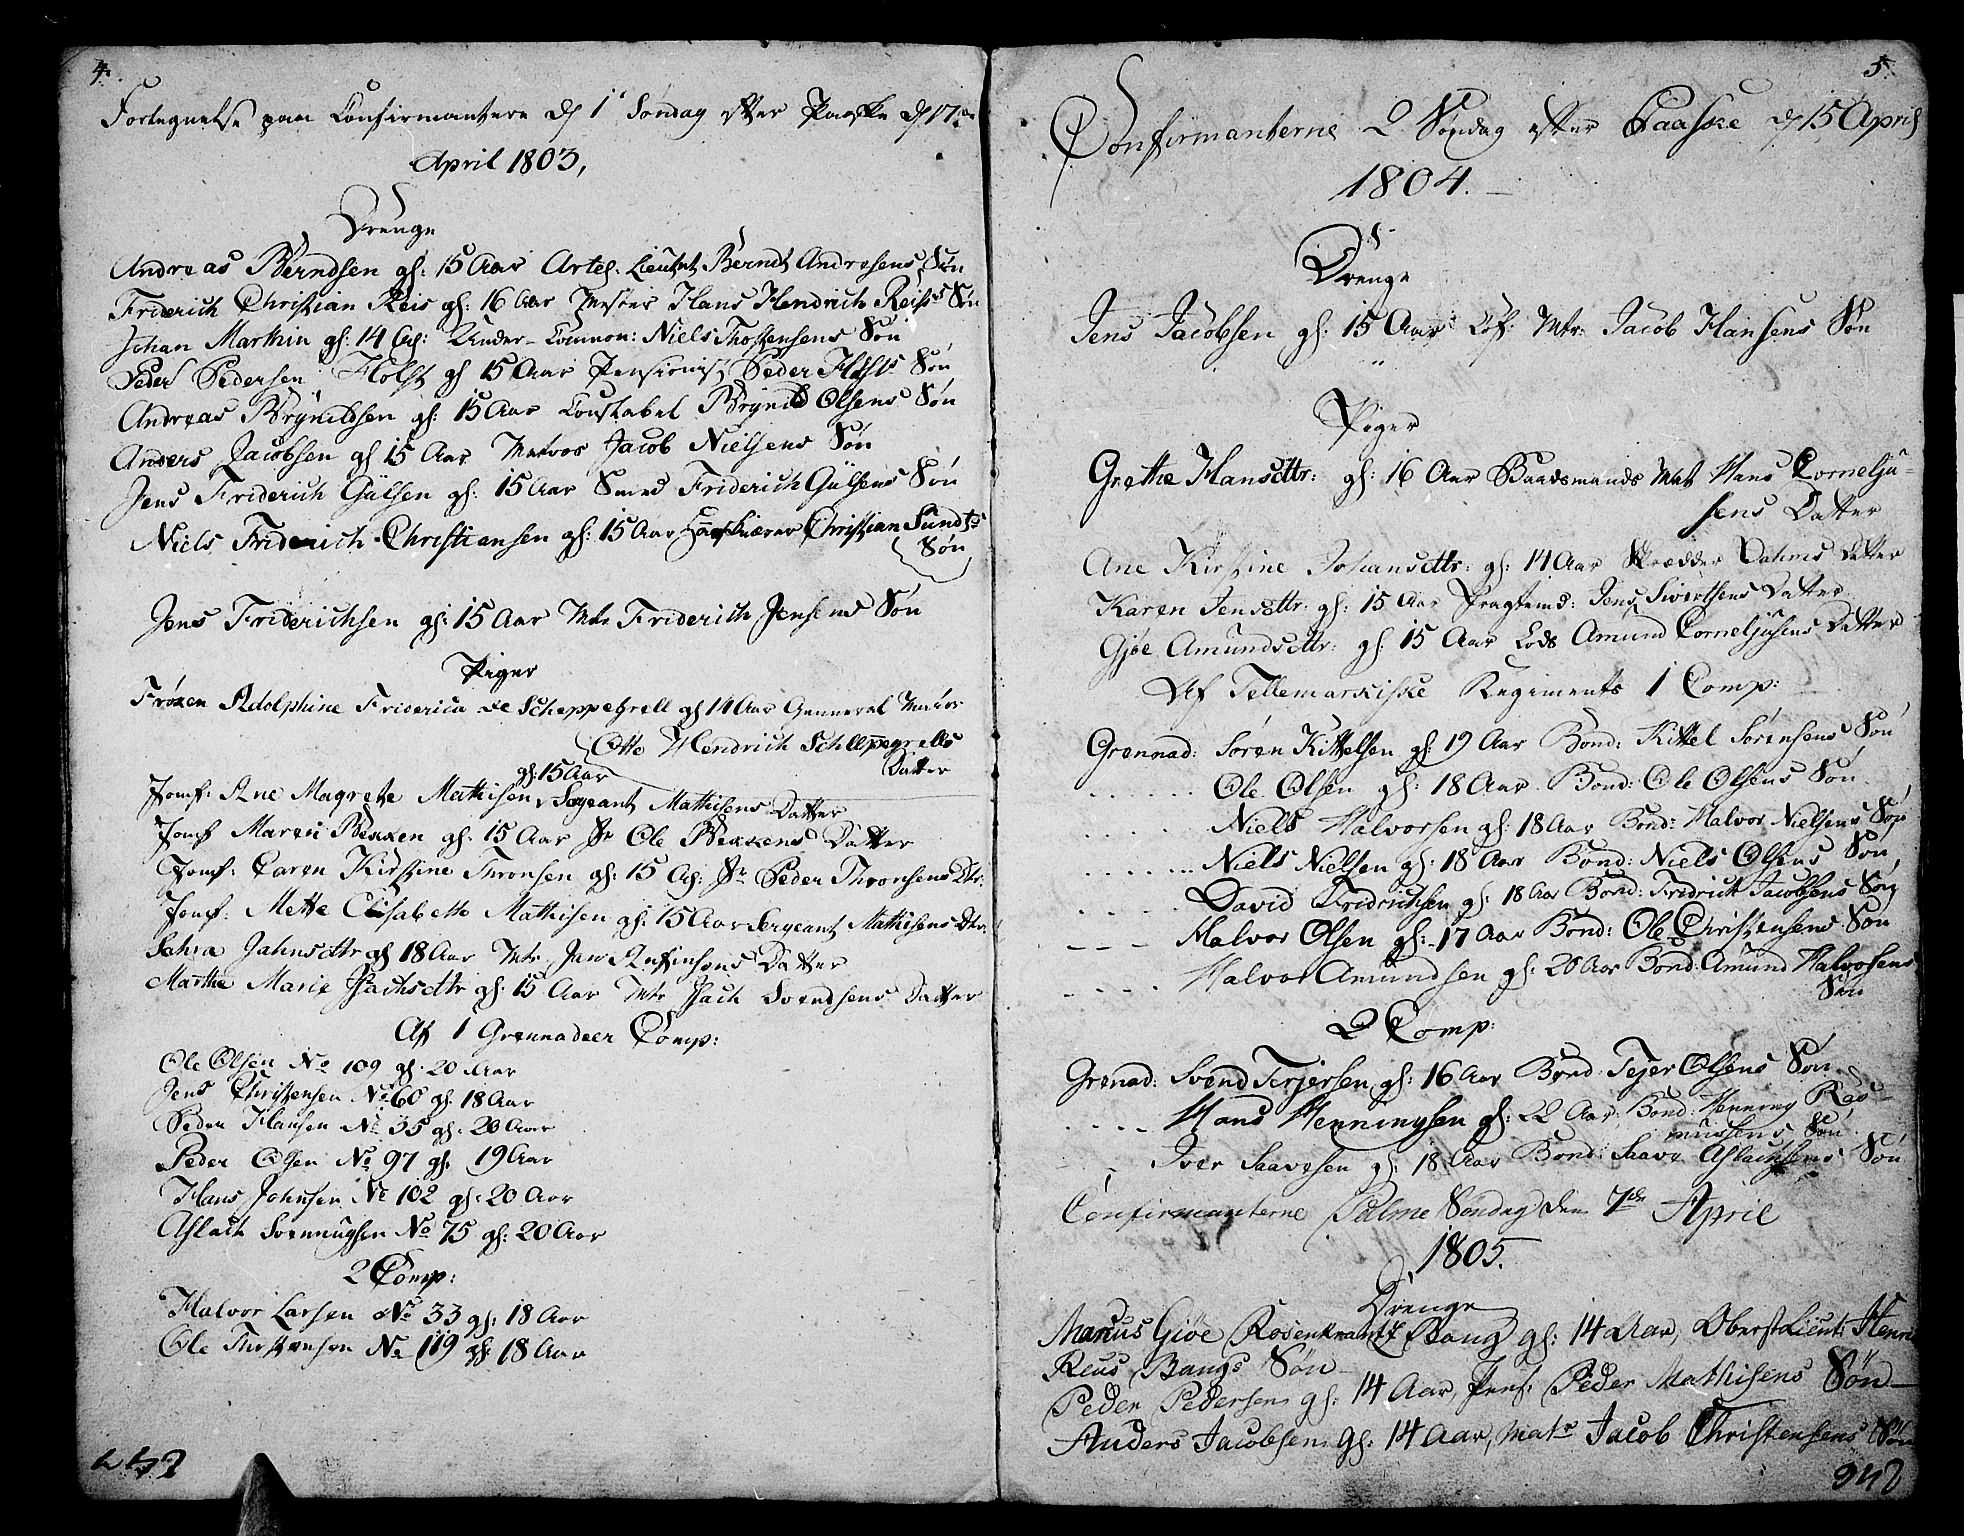 4.
Fortegnelse paa Confirmantere d. 1' Søndag efter Paaske d. 17de
April 1803,
Drenge
Andreas Berndsen gl: 15 Aar Artl. Lieutnt Berndt Andresens Søn
Friderich Christian Reis gl: 16 Aar Hans Hendrich Reiss Søn
Johan Marthin gl: 14 Under-Connon: Niels Thostensens Søn
Peder Pedersen Holst gl 15 Aar Pensionist Peder Holsts Søn
Andreas Brynildsen gl: 15 Aar Constabel Brynild Olsens Søn
Anders Jacobsen gl 15 Aar Matros Jacob Nielsens Søn
Jens Friderich Gülsen gl: 15 Aar Smed Friderich Gülsens Søn
Niels Friderich Christiansen gl: 15 Aar Christian Sundts
Søn
Jens Friderichsen gl: 15 Aar Mtr Friderich Jensens Søn
Piger
Frøken Adolphine Friderica de Scheppegrell gl 14 Aar Genneral Major
Otto Hendrich Scheppegrells
Datter
gl: 15 Aar
Jomf: Ane Magrete Mathisen, Sergeant Mathisens Datter
Jomf Maren Bekken gl: 15 Aar Sr Ole Bekkens Datter
Jomf: Caren Kirstine Thronsen gl: 15 Sr Peder Thronsens Dtr.
Jomf: Mette Elisabeth Mathisen gl: 15 Aar Sergeant Mathisens Dtr.
Sahra Jahnsdttr gl 18 Aar Mtr Jan Datter
Marthe Marie gl: 15 Aar Mtr Svendsens Datter
Af 1 Grennadeer Comp:
Ole Olsen No 109 gl. 20 Aar
Jens Christensen No 60 gl: 18 Aar
Peder Hansen No 35 gl: 20 Aar
Peder Olsen No 97 gl. 19 Aar
Hans Johnsen No 102 gl: 20 Aar
Aslach No 75 gl: 20 Aar
2 Comp:
Halvor Larsen No 33 gl: 18 Aar
Ole Thostensen No 119 gl: 18 Aar
5.
Confirmanterne 2. Søndag efter Paaske d. 15 April
1804.
Drenge
Jens Jacobsen gl: 15 Aar Mtr: Jacob Hansens Søn
Piger
Grethe Hansdttr: gl: 16 Aar Baadsmands Mat Hans Cornelju-
sens Datter
Ane Kirstine Johansdttr: gl: 14 Aar Skrædder Dahms Datter
Karen Jensdttr: gl: 15 Aar Jens Sivertsens Datter
Gjøe Amundsdttr: gl: 15 Aar Lods Amund Corneljusens Datter
Af Tellemarkiske Regiments 1 Comp:
Grennad: Søren Kittelsen gl: 19 Aar Bond: Kittel Sørensens Søn
...... Ole Olsen gl: 18 Aar Bond: Ole Olsens Søn
...... Niels Halvorsen gl: 18 Aar Bond: Halvor Nielsens Søn
...... Niels Nielsen gl: 18 Aar Bond: Niels Olsens Søn,
.... David Fridrichsen gl: 18 Aar Bond: Fridrich Jacobsens Søn
---- Halvor Olsen gl: 17 Aar Bond: Ole Christensens Søn
.... Halvor Amundsen gl: 20 Aar Bond: Amund Halvorsens
Søn
2 Comp:
Grenad: Svend Terjersen gl: 16 Aar Bond Tejer Olsens Søn
.... Hans Henningsen gl: 22 Aar Bond: Henning Ras-
mussens Søn
Iver Saavesen gl: 18 Aar Bond: Saave Aslachsens Søn
Confirmanterne Palme Søndag den 7de April
1805.
Drenge
Marcus Giøe Rosenkrantz Bang gl: 14 Aar, Oberst Lieut: Henri
Reus Bangs Søn
Peder Pedersen gl: 14 Aar, Pens: Peder Mathisens Søn
Anders Jacobsen gl: 14 Aar, Matr Jacob Christensens Søn